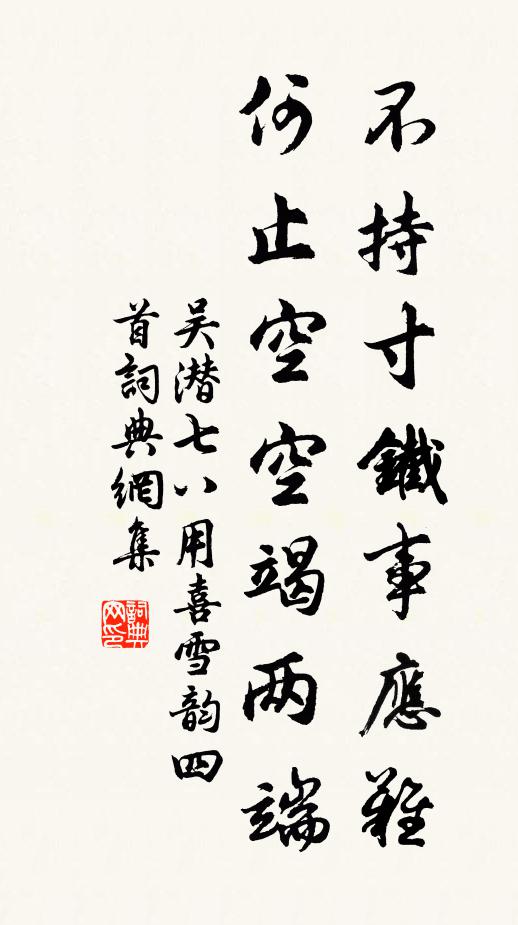 不持寸鐵事應難
何止空空竭两端
吴潜七八用喜雪韵四
首詞典網集
詞典网印